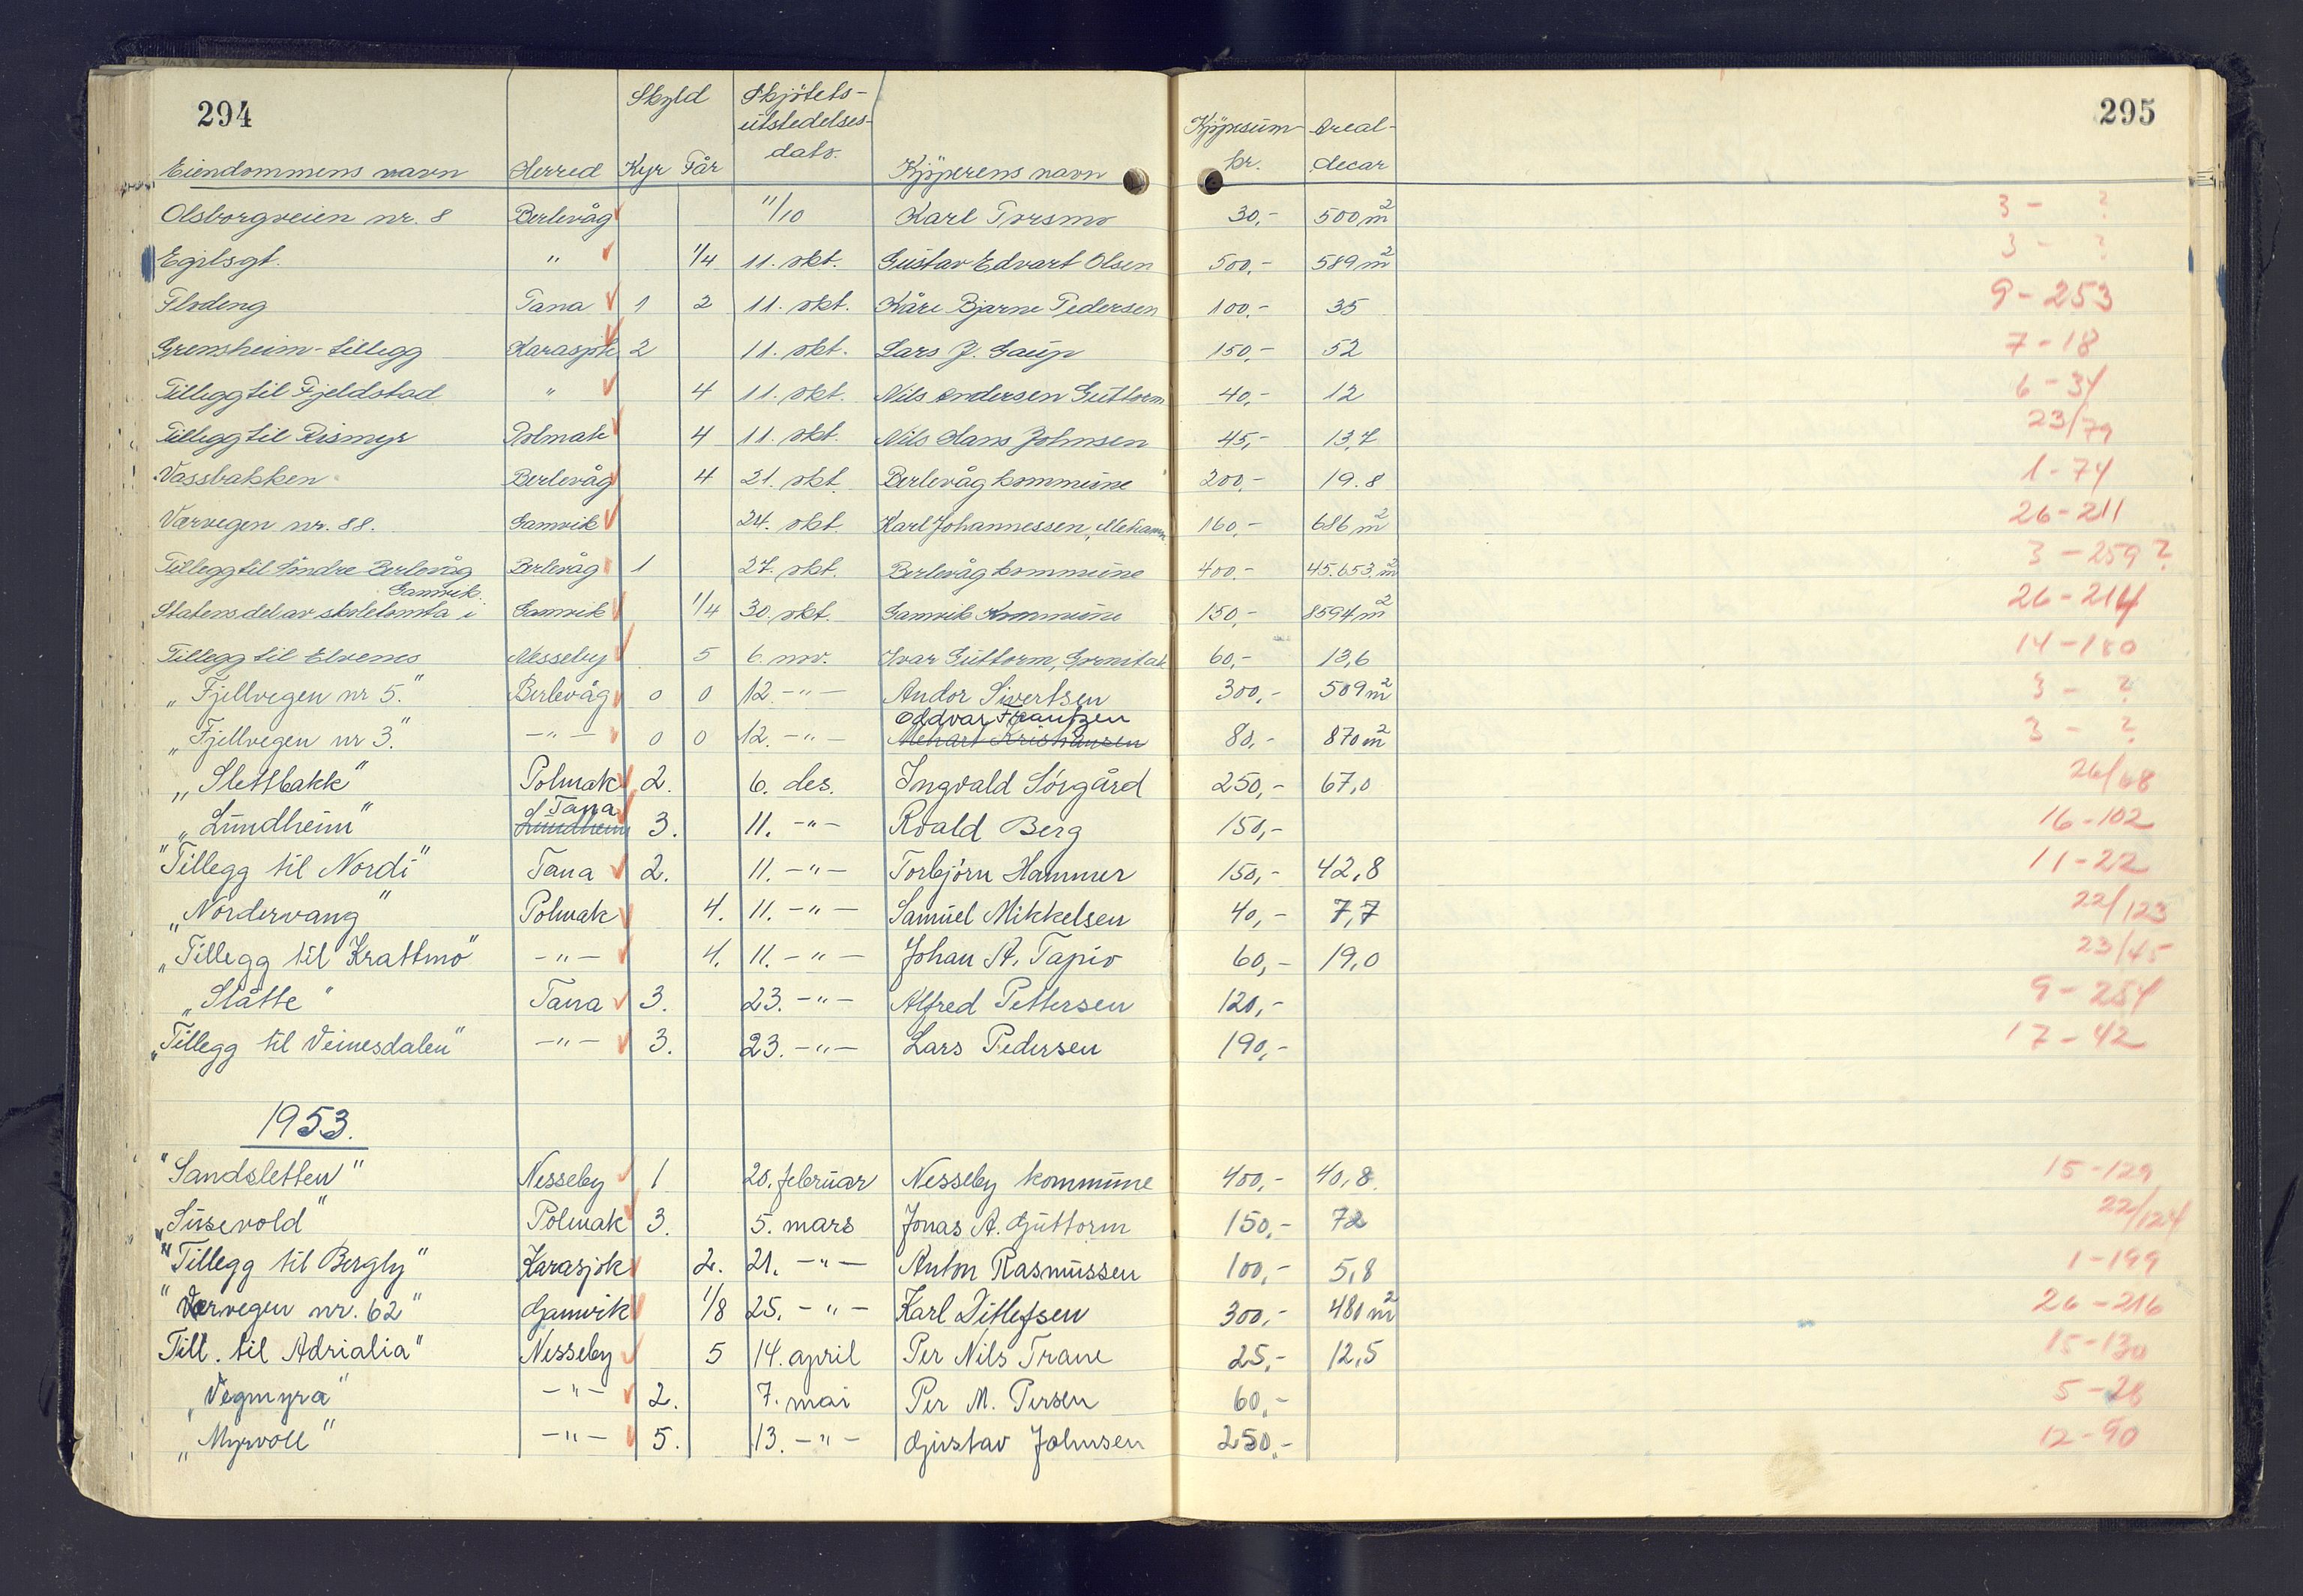 294
295
Skyld Skjötets-
utstedelses- Kjöpesum Areal-
Eiendommens navn Herred Kyr Får dato. Kjöperens navn kr. decar
Olsborgveien nr. 8 Berlevåg 11/10 Karl Torsmo 30,- 500 m² 3 - ?
Egilsgt. " 1/4 11. okt. Gustav Edvart Olsen 500,- 589 m² 3 - ?
Flodeng Tana 1 2 11. okt. Kåre Bjarne Pedersen 100,- 35 9-253
Grensheim-tillegg Karasjok 2 11. okt. Lars J. Gaup 150,- 52 7-18
Tillegg til Fjeldstad " 4 11. okt. Nils Andersen Guttorm 40,- 12 6-34
Tillegg til Rismyr Polmak 4 11. okt. Nils Hans Johnsen 45,- 13,7 23/79
Vassbakken Berlevåg 4 21. okt. Berlevåg kommune 200,- 19.8 1-74
Værvegen nr. 88. Gamvik 24. okt. Karl Johannessen, Mehamn 160,- 686 m² 26-211
Tillegg til Indre Berlevåg Berlevåg 1 27. okt. Berlevåg kommune 400,- 45.653 m² 3-259?
Gamvik.
Statens del av skoletomta i Gamvik 1/4 30. okt. Gamvik Kommune 150,- 8594 m² 26-214
Tillegg til Elvenes Nesseby 5 6. nov. Ivar Guttorm, 60,- 13,6 14-180
"Fjellvegen nr 5." Berlevåg 0 0 12. -"- Andor Sivertsen 300,- 509 m² 3 - ?
Oddvar Frantzen
"Fjellvegen nr 3." -"- 0 0 12. -"- 80,- 870 m² 3 - ?
"Slettbakk" Polmak 2. 6. des. Ingvald Sörgård 250,- 67,0 26/68
Tana
"Lundheim" Lundheim 3. 11. -"- Roald Berg 150,- 16-102
"Tillegg til Nordi" Tana 2. 11. -"- Torbjörn Hammer 150,- 42,8 11-22
"Nordervang" Polmak 4. 11. -"- Samuel Mikkelsen 40,- 7,7 22/123
"Tillegg til Krattmo" -"- 4. 11. -"- Johan A. Tapio 60,- 19,0 23/45
"Slåtte" Tana 3. 23. -"- Alfred Pettersen 120,- 9-254
"Tillegg til Veinesdalen" -"- 3. 23. -"- Lars Pedersen 190,- 17-42
1953.
"Sandsletten" Nesseby 1 20. februar Nesseby kommune 400,- 40,8. 15-129
"Susevold" Polmak 3. 5. mars Jonas A. Guttorm 150,- 72 22/124
"Tillegg til Bergly" Karasjok 2. 21. -"- Anton Rasmussen 100,- 5,8 1-199
"Værvegen nr. 62" Gamvik 1/8 25. -"- Karl Ditlefsen 300,- 480 m² 26-216
Till. til Adrialia" Nesseby 5 14. april Per Nils Trane 25,- 12,5 15-130
"Vegmyra" -"- 2. 7. mai Per M. Persen 60,- 5-28
"Myrvoll" -"- 5. 13. -"- Gustav Johnsen 250,- 12-90